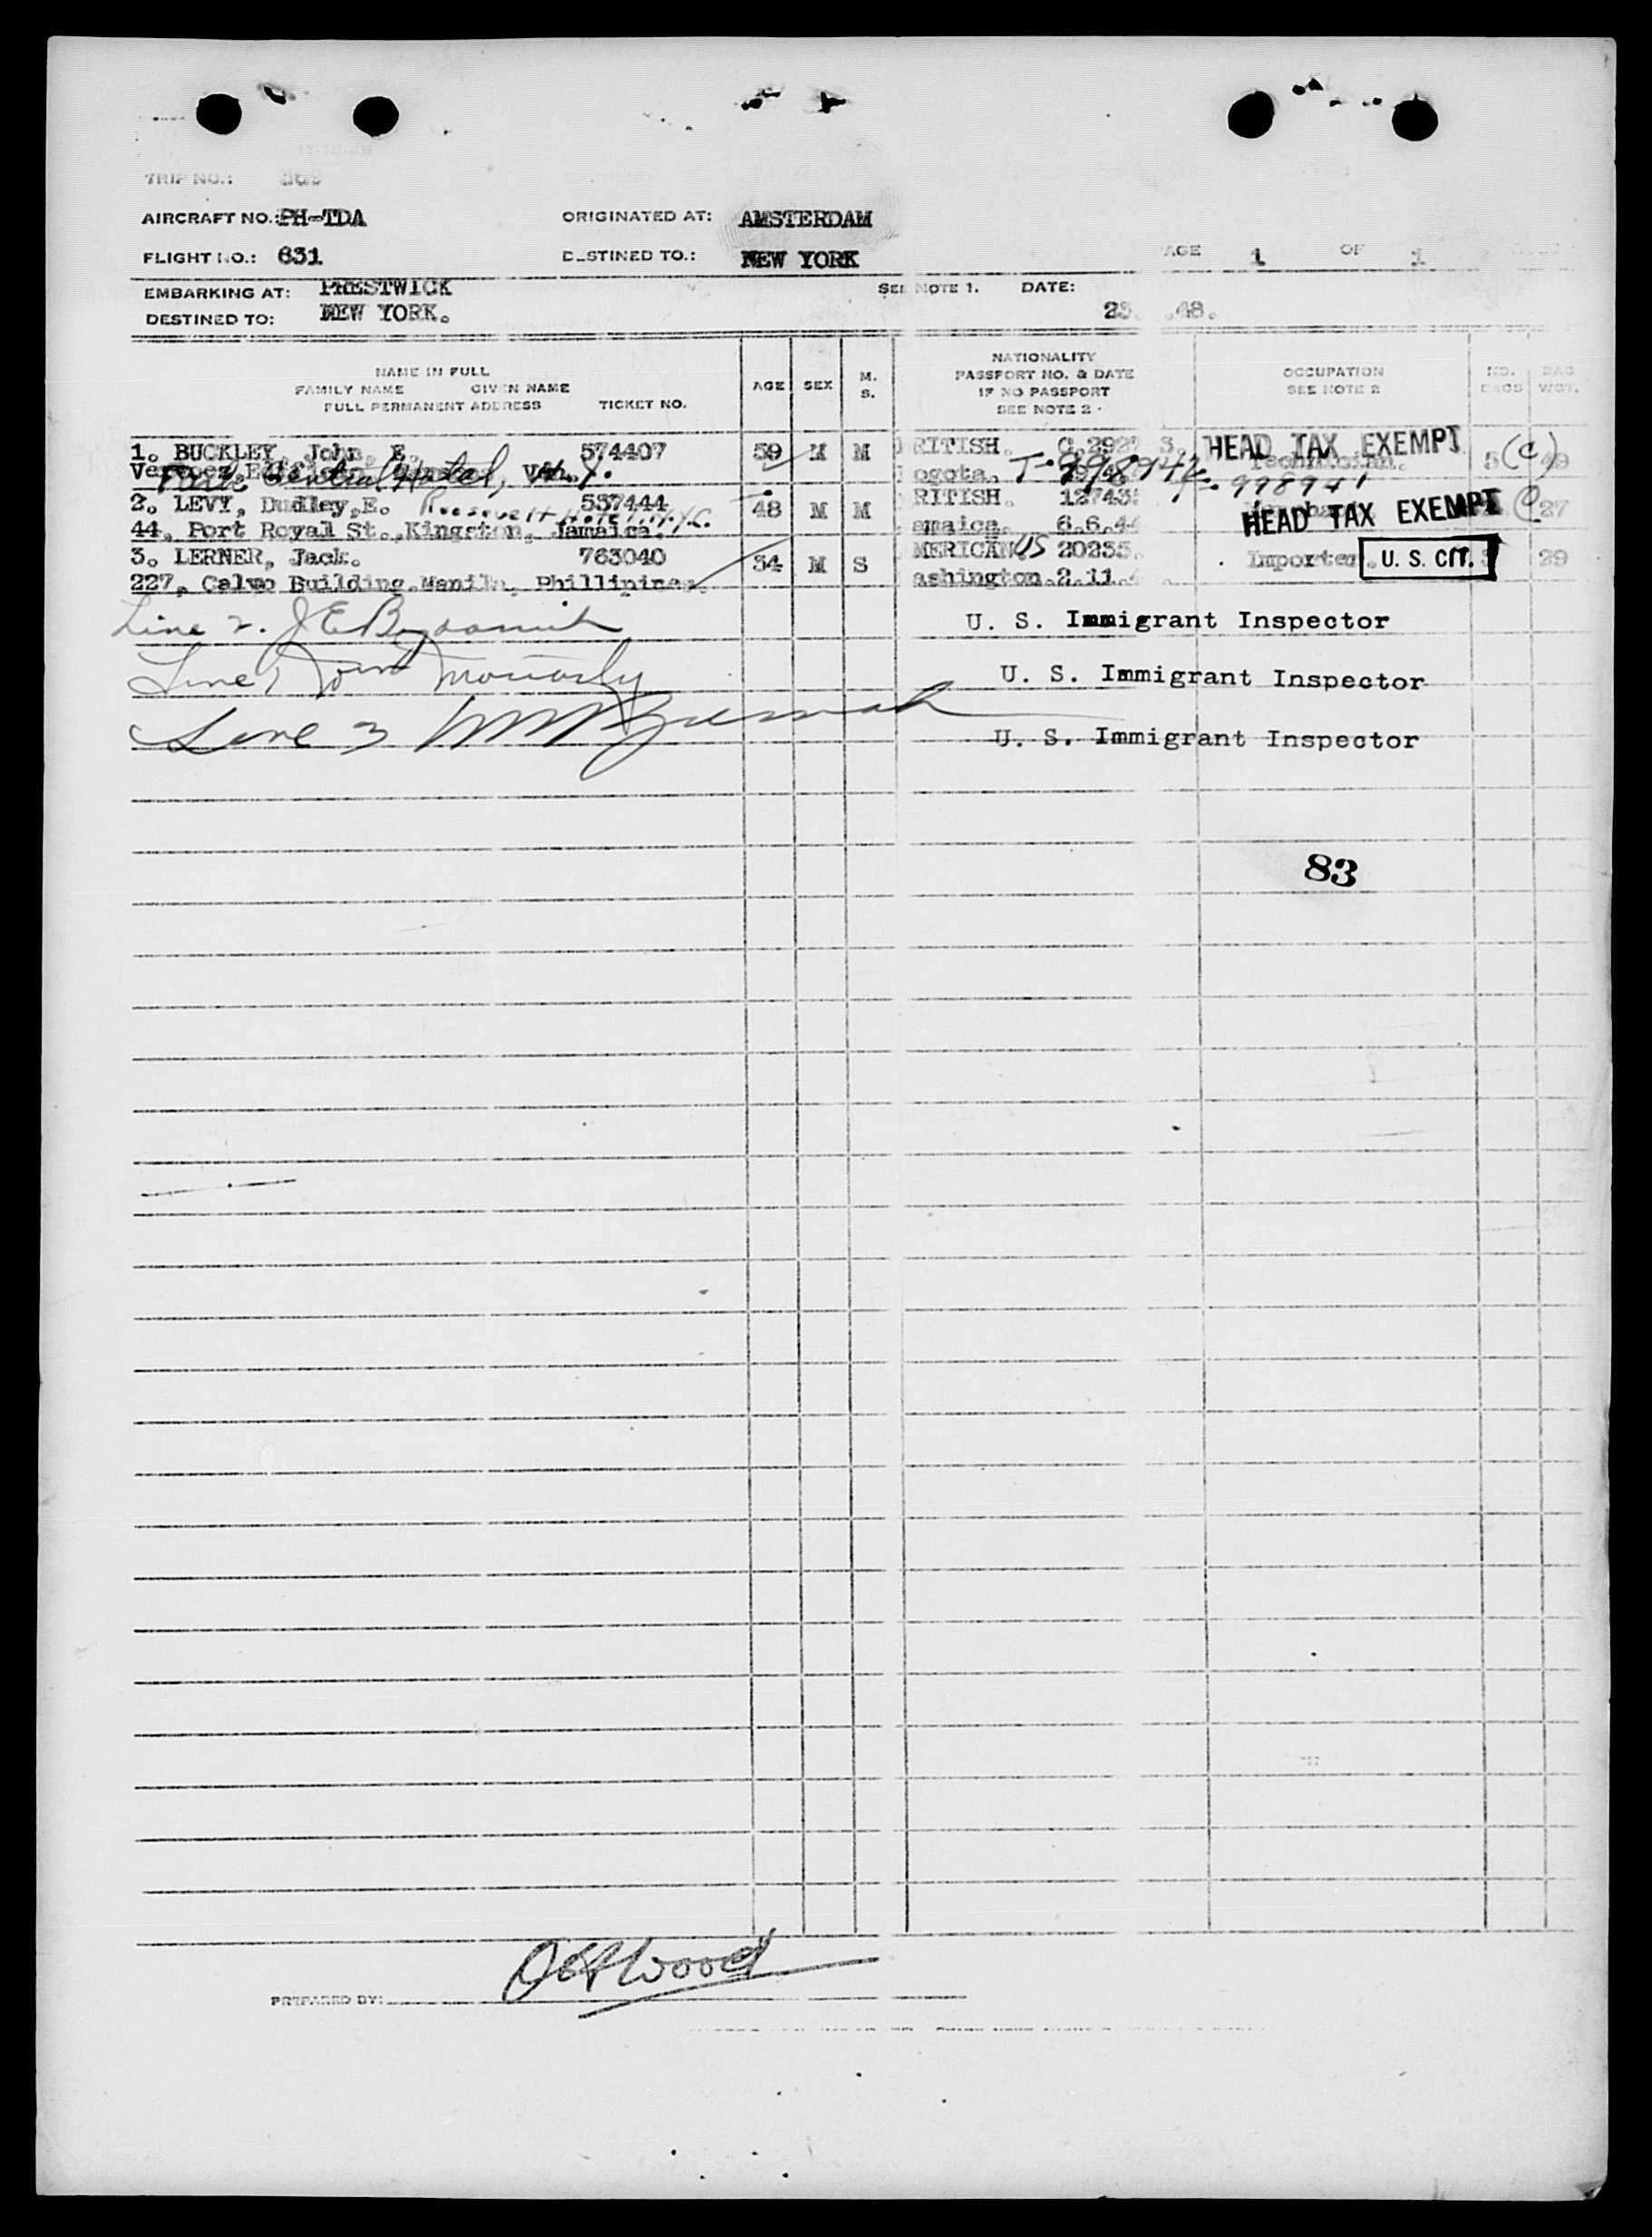 TRIP NO.:
AIRCRAFT NO.: PH-TDA ORIGINATED AT: AMSTERDAM
FLIGHT NO.: 631 DESTINED TO.: NEW YORK AGE 1 OF 1
EMBARKING AT: PRESTWICK SEE NOTE 1. DATE:
DESTINED TO: NEW YORK. .48.
NAME IN FULL
FAMILY NAME GIVEN NAME
FULL PERMANENT ADDRESS TICKET NO.
AGE SEX M. S.
NATIONALITY
PASSPORT NO. & DATE
IF NO PASSPORT
SEE NOTE 2
OCCUPATION
SEE NOTE 2
NO. BAGS BAG WGT.
1. BUCKLEY, John, E. 574407 59 M M RITISH. HEAD TAX EXEMPT (C)
Central Hotel, N.Y. ogota. Technician.
2. LEVY, Dudley, E. Roosevelt Hotel N.Y.C. 537444 48 M M RITISH. 12743 T-998941 27
44, Port Royal St., Kingston, Jamaica. amaica. 6.6.4 HEAD TAX EXEMPT
3. LERNER, Jack. 763040 34 M S MERICAN US 20235. Importer. U. S. CIT. 29
227, Calvo Building. Manila, Phillipines. ashington. 2.11.
Line 2. U. S. Immigrant Inspector
Line 1 U. S. Immigrant Inspector
Line 3 U. S. Immigrant Inspector
83
PREPARED BY: